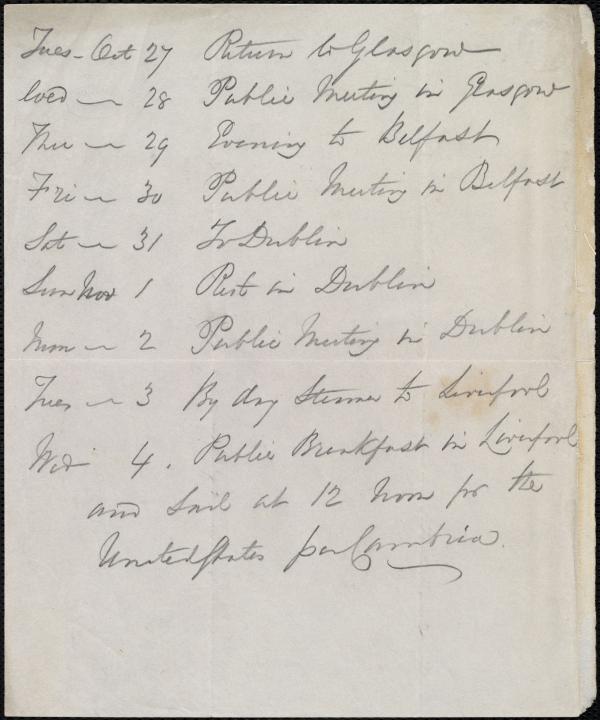 Tues - Oct 27 Return to Glasgow
Wed — 28 Public Meeting in Glasgow
Thu — 29 Evening to Belfast
Fri — 30 Public Meeting in Belfast
Sat — 31 To Dublin
Sun Nov 1 Rest in Dublin
Mon — 2 Public Meeting in Dublin
Tues — 3 By day Steamer to Liverpool
Wed 4. Public Breakfast in Liverpool
and Sail at 12 Noon for the
United States per Cambria.